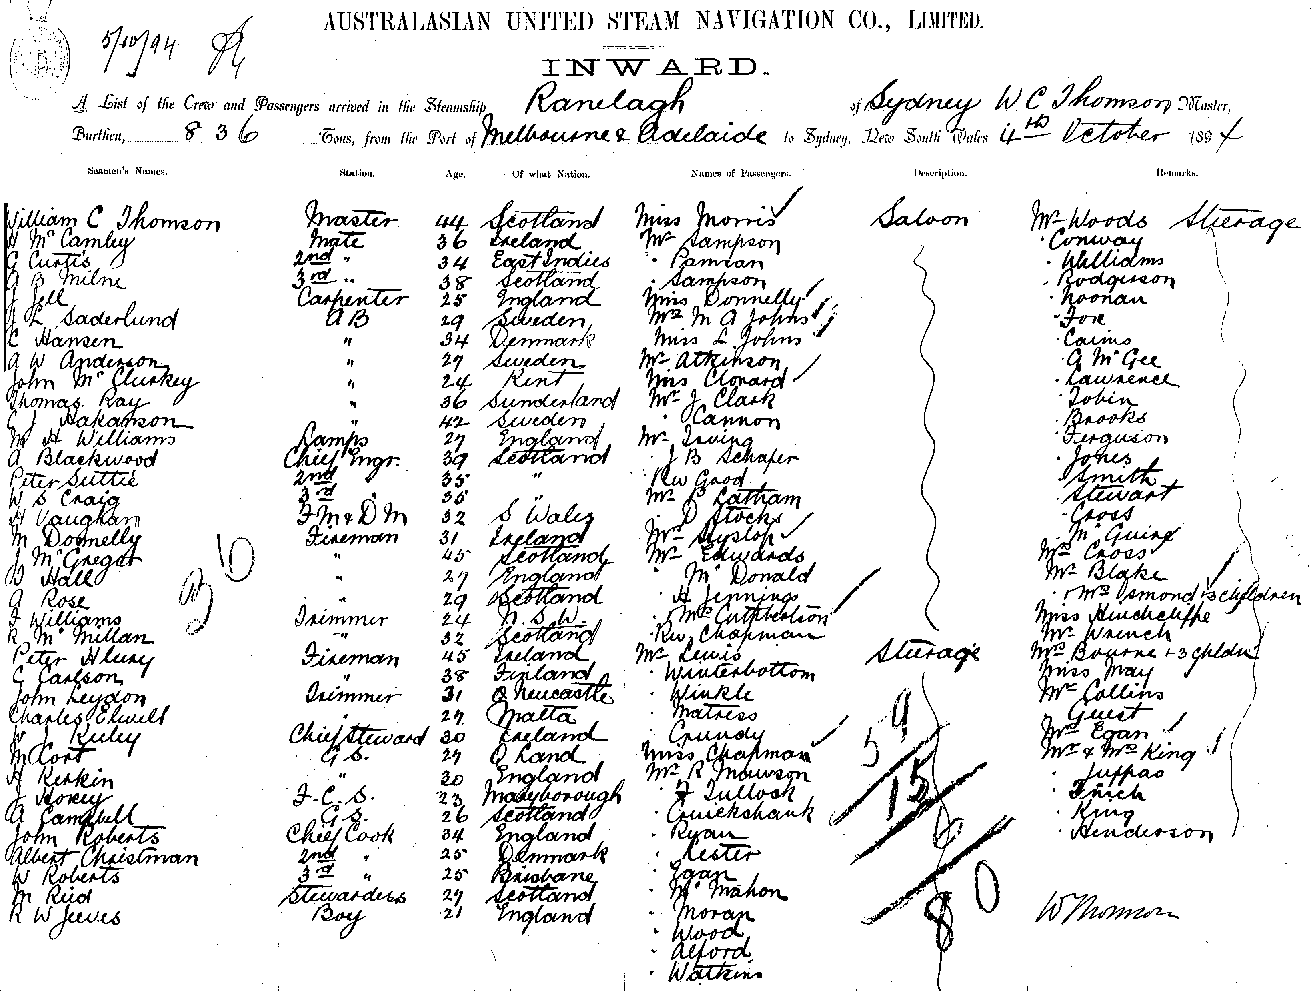 5/10/94
AUSTRALASIAN UNITED STEAM NAVIGATION CO., LIMITED.
INWARD.
A List of the Crew and Passengers arrived in the Steamship Ranelagh of Sydney W C Thomson Master,
Burthen, 836 Tons, from the Port of Melbourne & Adelaide to Sydney, New South Wales 4th October 1894
Seamen's Names. Station. Age. Of what Nation. Names of Passengers. Description. Remarks.
William C Thomson Master 44 Scotland Miss Morris Saloon Mr Woods Steerage
H McCamley Mate 36 Ireland Mr Sampson " Conway
G Curtis 2nd " 34 East Indies " Pamran " Williams
A B Milne 3rd " 38 Scotland " Sampson " Rodgerson
J Jell Carpenter 25 England Miss Donnelly " Noonan
J L Saderlund A B 29 Sweden Mrs M A Johns " Fox
C Hansen " 34 Denmark Miss L Johns " Cairns
A W Anderson " 27 Sweden Mr Atkinson " A McGee
John McCluskey " 24 Kent Miss Clonard " Lawrence
Thomas Ray " 36 Sunderland Mr J Clark " Tobin
J Hakanson " 42 Sweden " Cannon " Brooks
M H Williams Lamps 27 England Mr Irving " Ferguson
A Blackwood Chief Engr. 39 Scotland " J B Schafer " Jones
Peter Suttie 2nd 35 " Rev Good " Smith
W S Craig 3rd 35 " Mr P Latham " Stewart
H Vaughan F M & D M 32 S Wales " D Stocks " Cross
M Donnelly Fireman 31 Ireland Mr Hyslop " McGuire
J McGregor " 45 Scotland Mr Edwards Mrs Cross
B Hall " 27 England " McDonald Mr Blake
A Rose " 29 Scotland " H Jennings " Mrs Osmond + 3 children
F Williams Trimmer 24 N.S.W. " Mrs Cuthbertson Miss Hindcliffe
R McMillan " 32 Scotland Rev Chapman Mr Wrench
Peter Fireman 45 Ireland Mr Lewis Steerage Mrs Bourne + 3 childn
C Carlson " 38 Finland " Winterbottom Miss May
John Leydon Trimmer 31 Newcastle " Winkle Mr Collins
Charles " 27 Malta " Matress " Guest
W J Chief Steward 30 Ireland " Grundy Mr Egan
M Cort G.S. 27 Q Land Miss Chapman Mr & Mrs King
H Kerkin " 30 England Mr R Mawson " Juppas
J F.C.S. 23 Maryborough " F Tullock " Frich
A Campbell G.S. 26 Scotland " Cruickshank " King
John Roberts Chief Cook 34 England " Ryan " Henderson
Albert Christman 2nd " 25 Denmark " Lester
W Roberts 3rd " 25 Brisbane " Egan
M Reid Stewardess 27 Scotland " McMahon
R W Jeeves Boy 21 England " Moran W Thomson
" Wood
" Alford
" Watkins
36
59
15
6
80